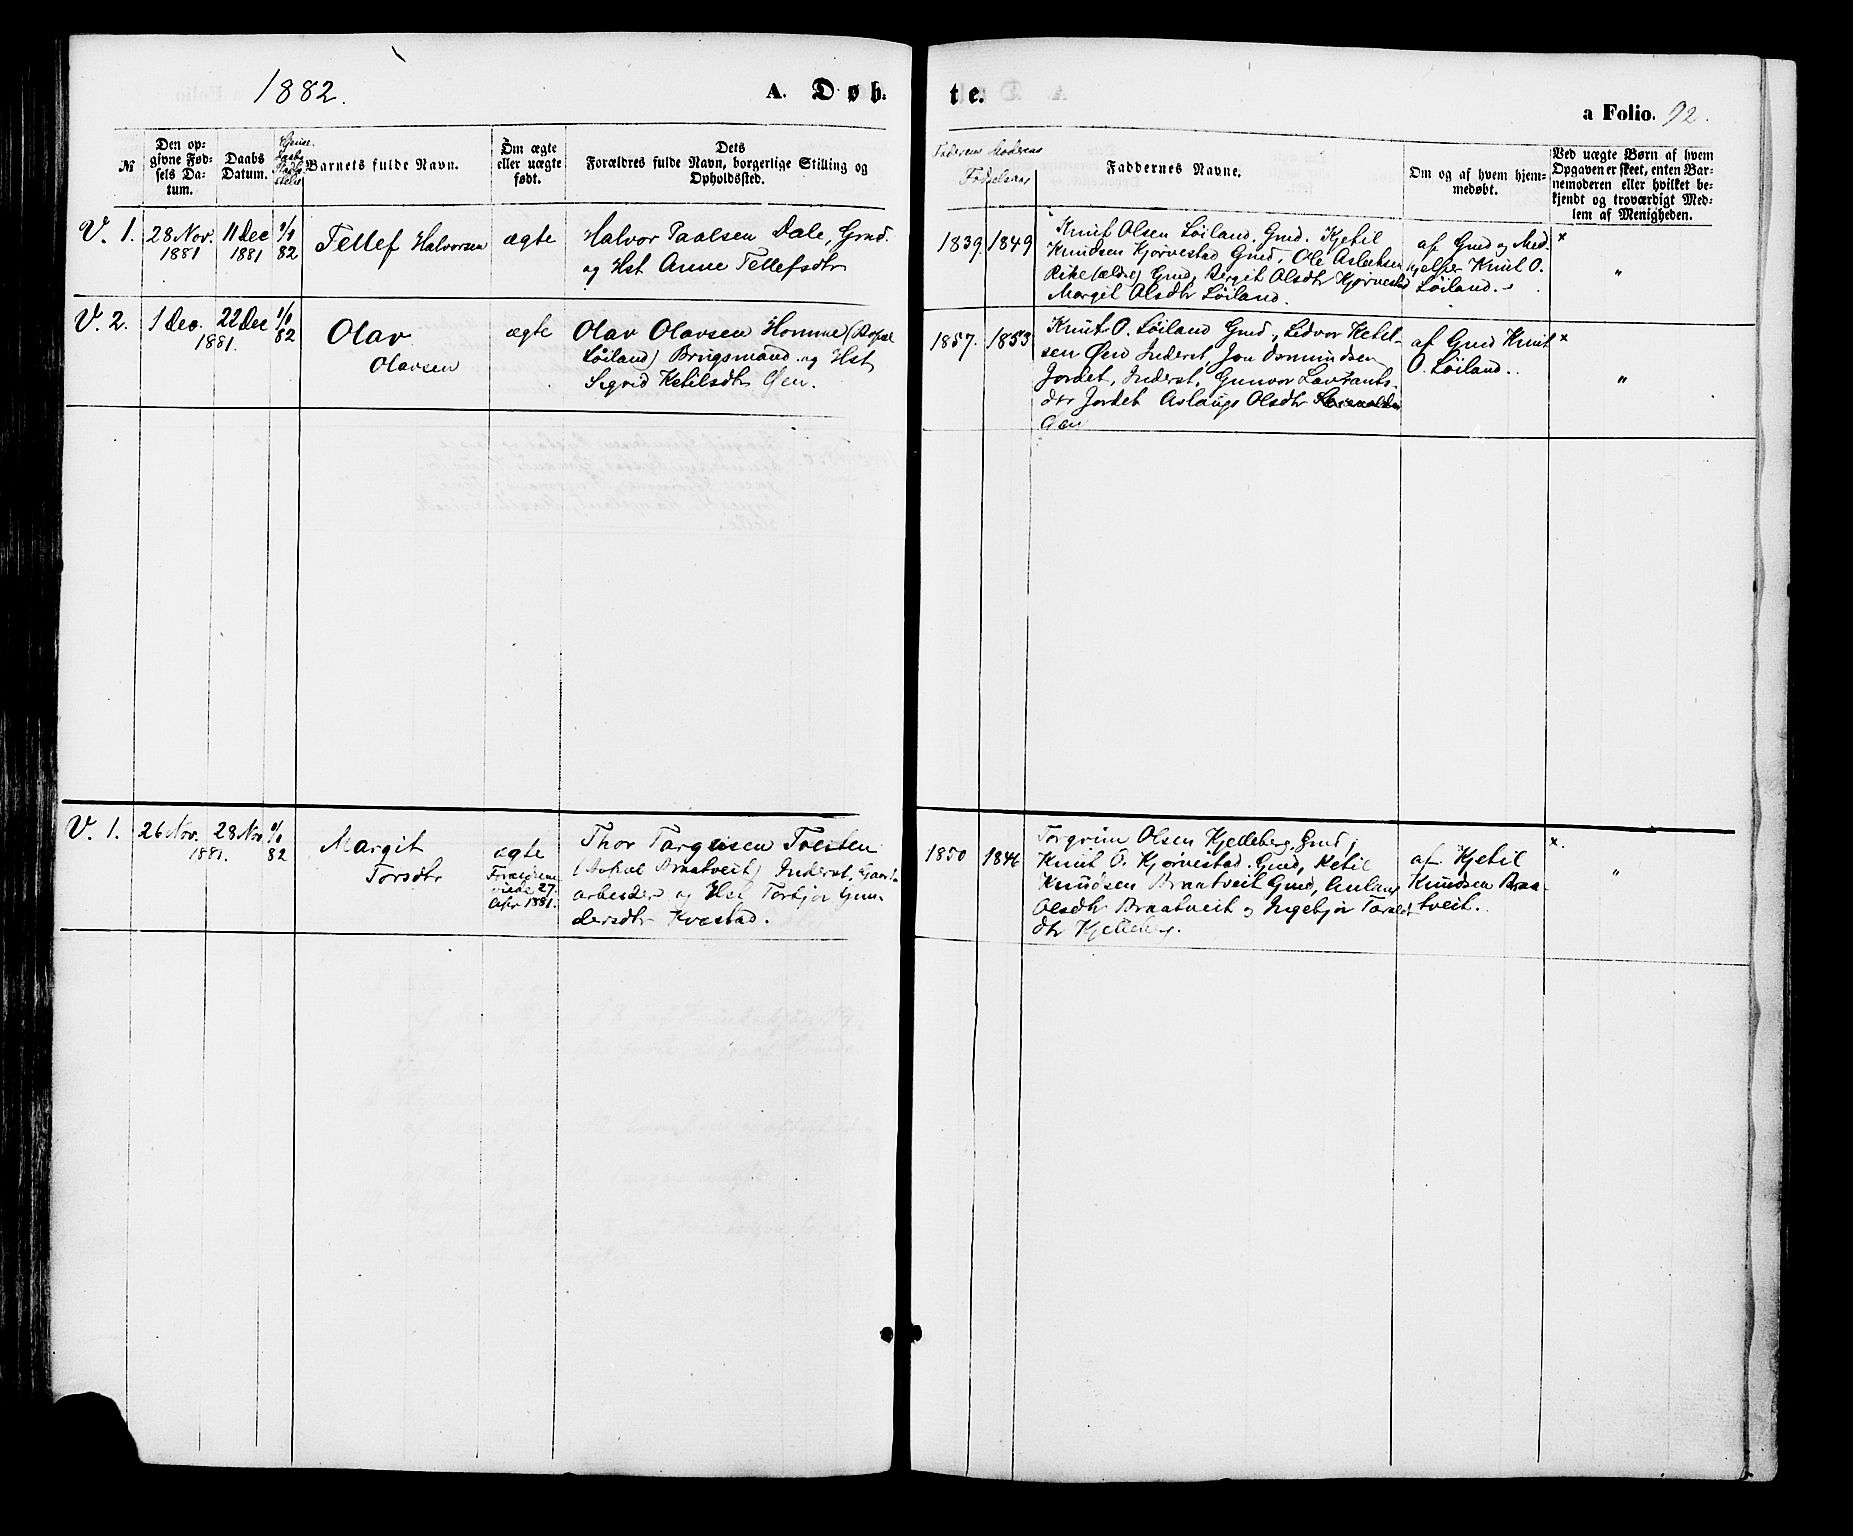 1882.
A. Døb-
te.
a Folio. 92.
№
Den op-
givne Fød-
sels Da-
tum.
Daabs
Datum.
Barnets fulde Navn.
Om ægte
eller uægte
født.
Dets
Forældres fulde Navn, borgerlige Stilling og
Opholdssted.
Faderens Moderens
Fødselsaar
Faddernes Navne.
Om og af hvem hjem-
medøbt.
Ved uægte Børn af hvem
Opgaven er skeet, enten Bar-
nemoderen eller hvilket be-
kjendt og troværdigt Med-
lem af Menigheden.
V. 1.
28 Nov.
1881
11 Dec
1881
82
Tellef Halvorsen
ægte
Halvor Paalsen Dale, Gmd.
og Hst Anne Tellefsdtr
1839.
1849
Knut Olsen Løiland, Gmd. Kjetil
Knudsen Kjørvestad Gmd, Ole Aslaksen
Rike (ældre) Gmd, Bergit Olsdtr Kjørvestad
Margit Olsdtr Løiland.
af Gmd og Med-
hjelper Knut O.
Løiland.
x
"
V. 2.
1 Dec.
22 Dec
1881.
82
Olav
Olavsen
ægte
Olav Olavsen Homme (Bopæl
Løiland) Brugsmand og Hst
Sigrid Ketilsdtr Øen.
1857.
1853
Knut O. Løiland Gmd, Ledvor Ketil-
sen Øen Inderst, Jon Osmundsen
Jordet, Inderst, Gunvor Lavrants-
dtr Jordet Aslaug Olsdtr
Øen
af Gmd Knut
O. Løiland.
x
"
V. 1.
26 Nov.
28 Nov
1881.
82
Margit
Torsdtr
ægte
Forældrene
viede 27.
Apr 1881.
Thor Targeisen Tveiten
(Bopæl Braatveit) Inderst, Gaards-
arbeider og Hst Torbjør Gun-
dersdtr Kvestad.
1850
1846
Torgrim Olsen Kjelleberg, Gmd,
Knut O. Kjørvestad, Gmd, Ketil
Knudsen Braatveit Gmd, Anlaug
Olsdtr Braatveit og Ingebjør Tarald-
dtr Kjelleberg.
af Kjetil
Knudsen Braa-
tveit.
x.
"